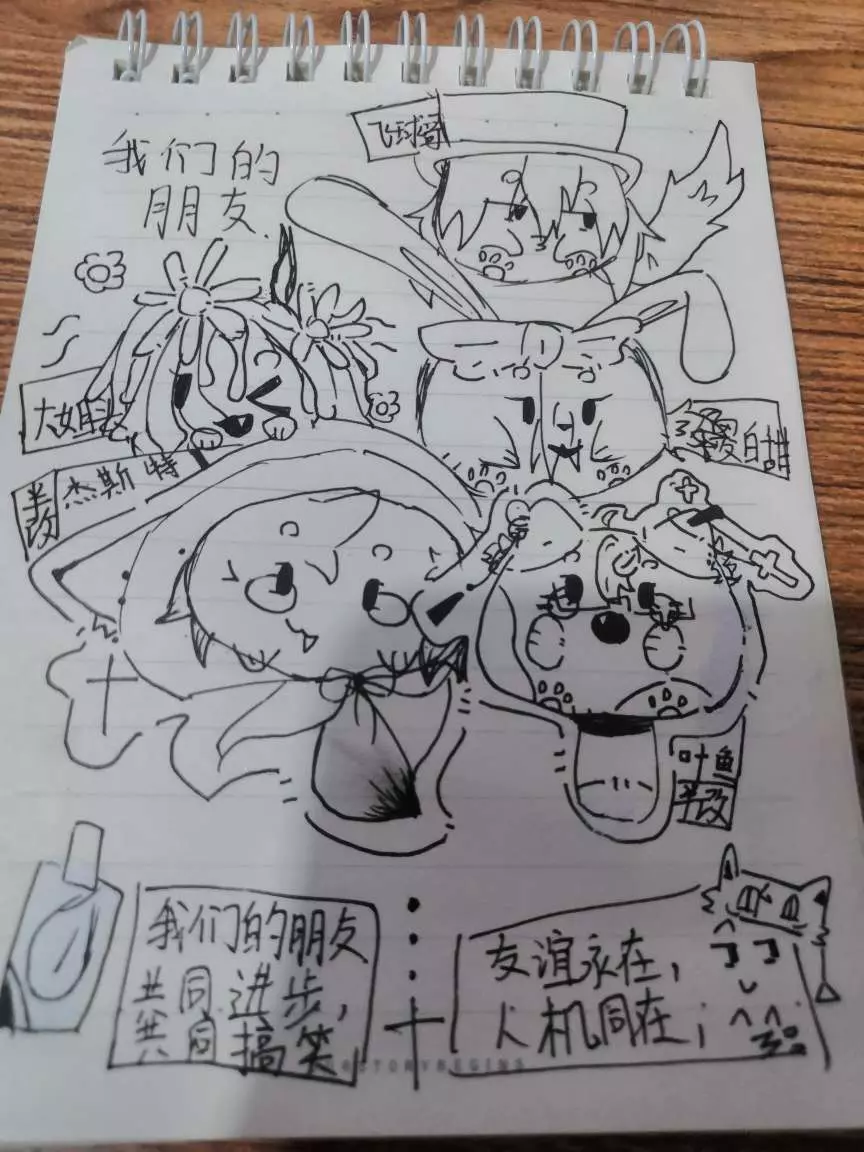 我们的
朋友
飞球
大姐
白甜
杰斯特
半改
叶鱼
半改
我们的朋友
共同进步，
共同搞笑
友谊永在，
人机同在；
STORY BEGINS